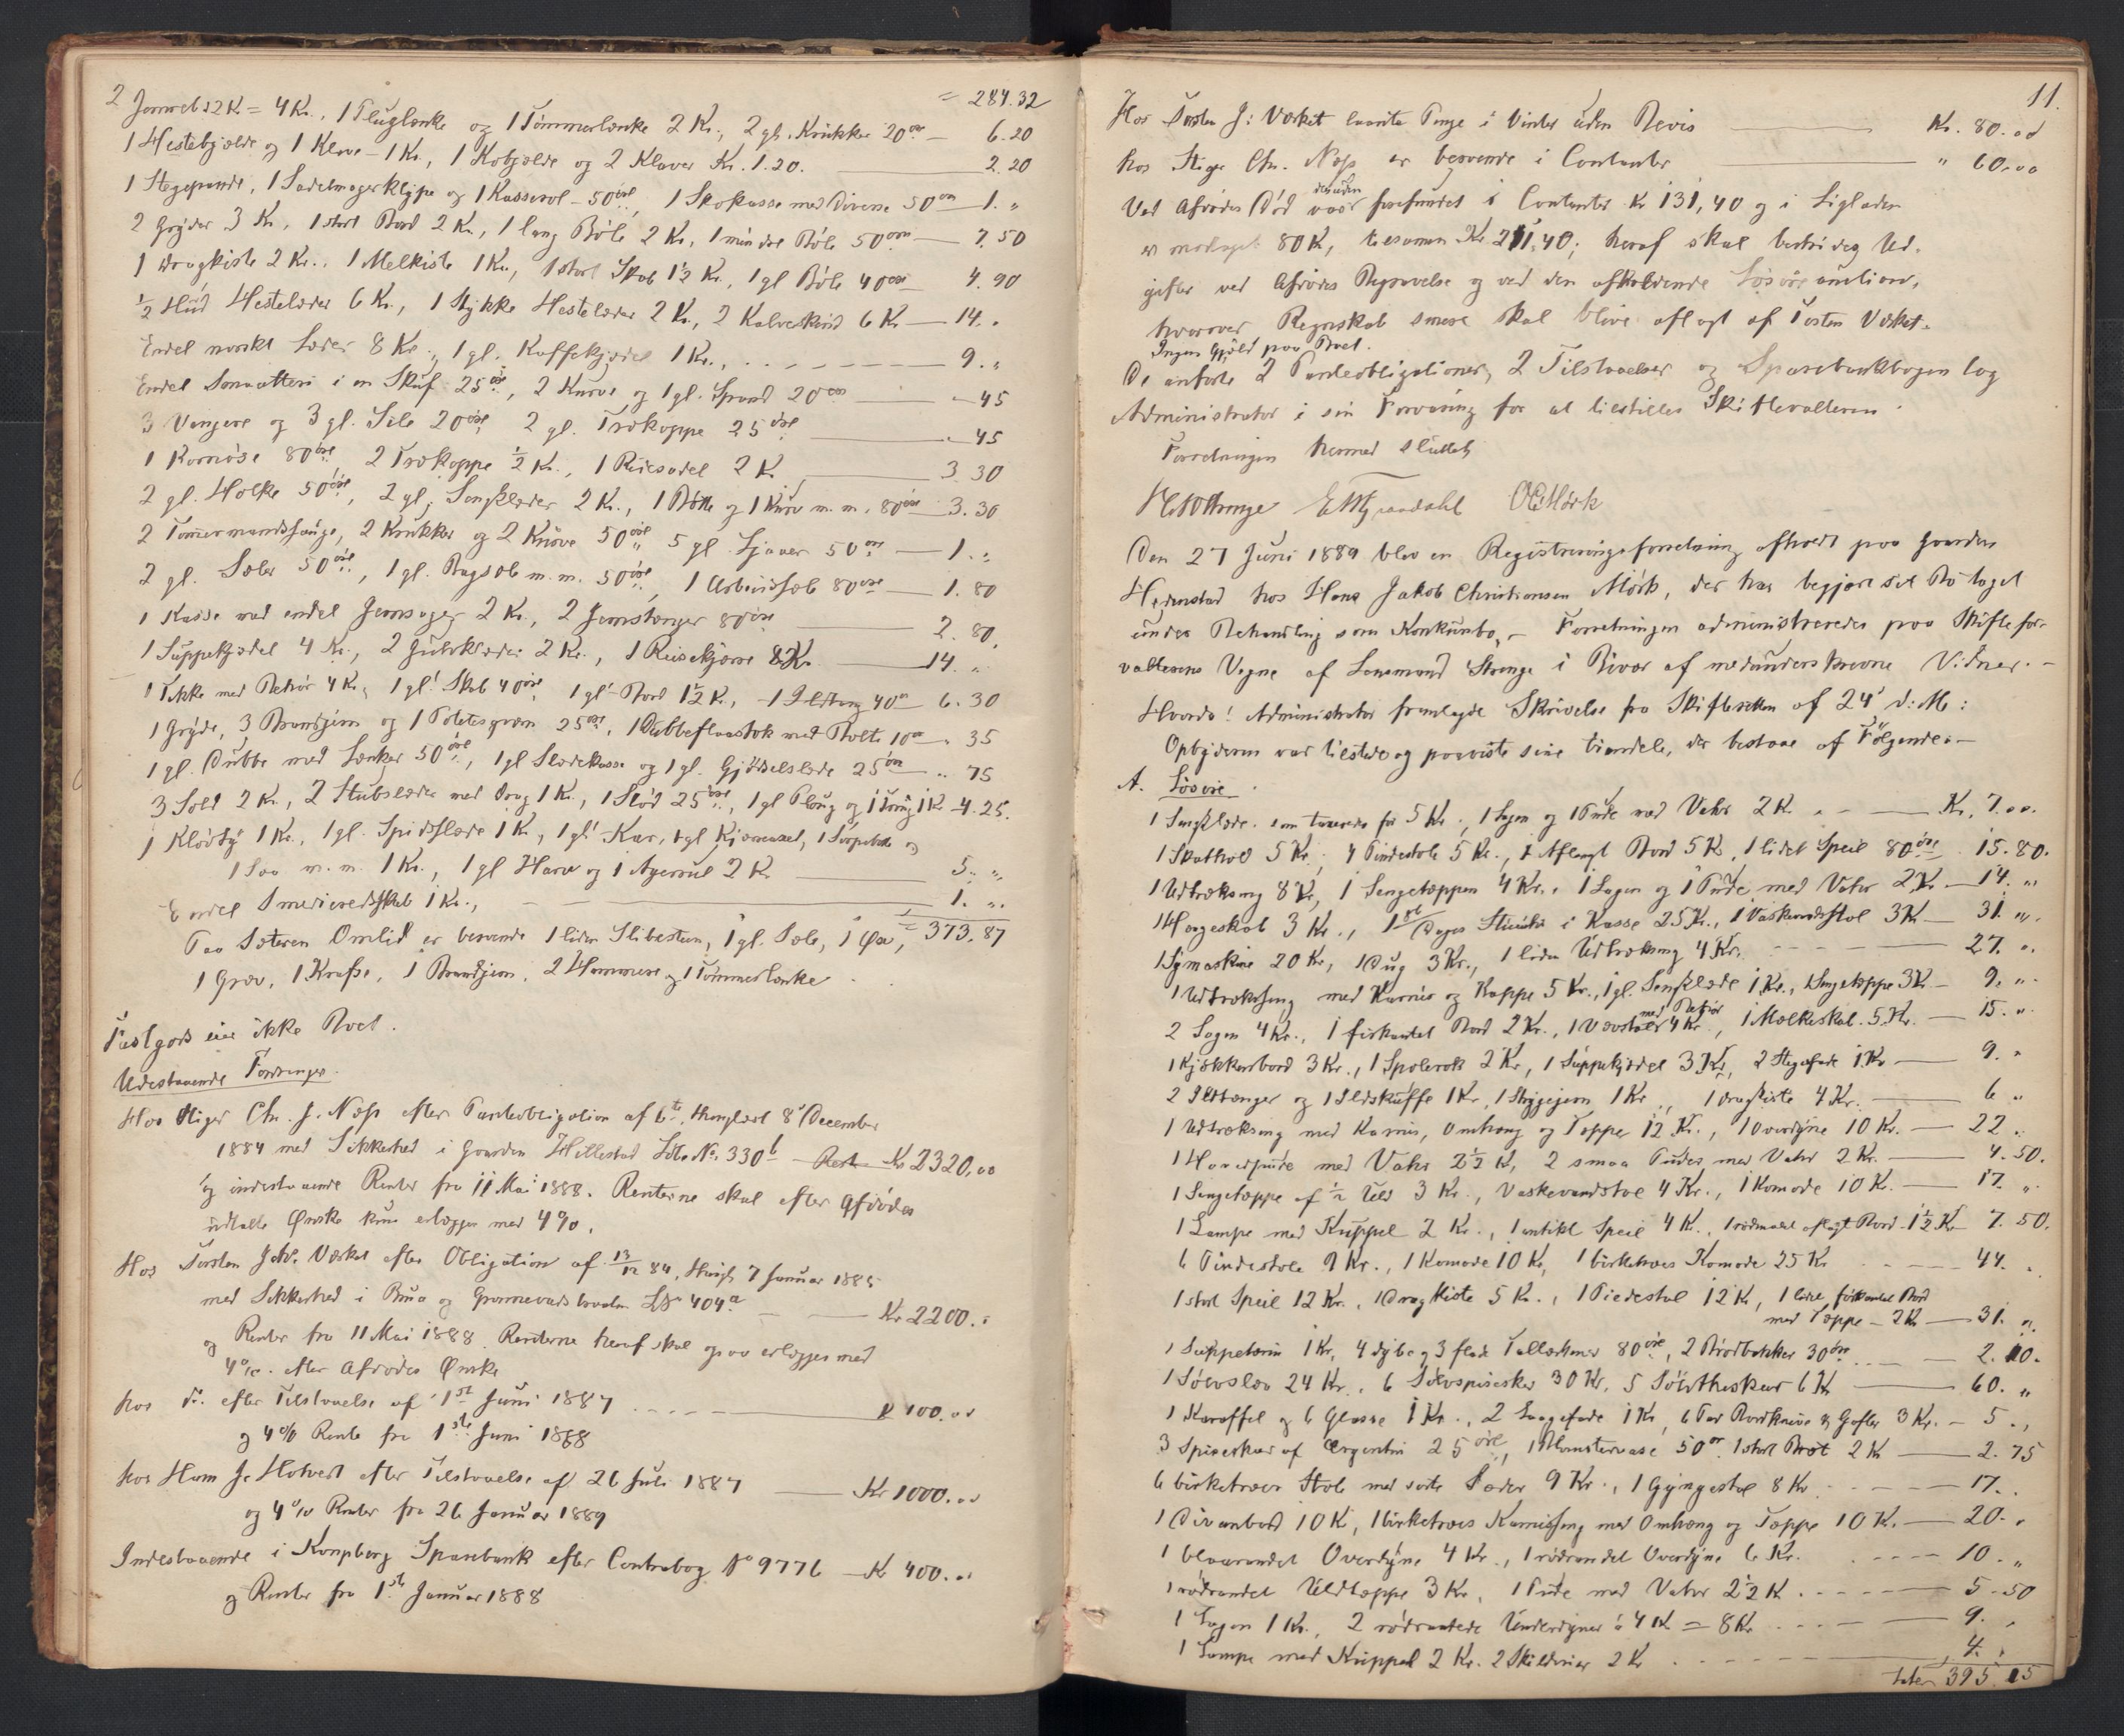 = 284.32
2 Jernveb 2 K = 4 Kr., 1 Pluglænke og 1 Tømmerlænke 2 Kr., 2 gl. Krukker 20 øre — 6.20
1 Hestebjælde og 1 Klave - 1 Kr., 1 Kobjælde og 2 Klaver Kr. 1.20. — 2.20
1 Stegepande, 1 Sadelmagerklype og 1 Kasserol - 50 øre, 1 Skokasse med Diverse 50 øre — 1. "
2 Gryder 3 Kr., 1 stort Bord 2 Kr., 1 lang Bøle 2 Kr., 1 mindre Bøle 50 øre — 7.50
1 Dragkiste 2 Kr., 1 Melkiste 1 Kr., 1 stort Skab 1½ Kr., 1 gl Bøle 40 øre 4.90
½ Hud Hestelæder 6 Kr., 1 Stykke Hestelæder 2 Kr., 2 Kalveskind 6 Kr — 14. "
Endel norskt Læder 8 Kr., 1 gl. Kaffekjedel 1 Kr., — 9. "
Endel Smaatteri i en Skuf 25 øre, 2 Kurve og 1 gl. Spand 20 øre — " 45
3 Vengere og 3 gl. Sele 20 øre 2 gl. Trækoppe 25 øre — " 45
1 Kornøse 80 øre, 2 Trækoppe ½ Kr., 1 Ridesadel 2 K. — 3.30
2 gl. Holke 50 øre, 2 gl. Sengklæder 2 Kr., 1 Bøtte og 1 Kurv m.m. 80 øre 3.30
2 Tømmermandssauge, 2 Krukker og 2 Knive 50 øre 5 gl. Ljaaer 50 øre — 1. "
2 gl. Sæler 50 øre, 1 gl. Bagsøle m.m. 50 øre, 1 Arbeidssæle 80 øre — 1.80
1 Kasse med endel Jernsager 2 Kr., 2 Jernstænger 80 øre — 2.80.
1 Suppekjedel 4 Kr., 2 Gulvklæder 2 Kr., 1 Reisekjærre 8 Kr. — 14. "
1 med Behør 4 Kr., 1 gl. Skab 40 øre 1 gl. Bord 1½ Kr., 1 Ildtang 40 ør 6.30
1 Gryde, 3 Brandjern og 1 Potetesgræv 25 øre, 1 Dubbe med Bolte 10 ør " 35
1 gl. Dubbe med Lænker 50 øre, 1 gl Slædekasse og 1 gl. Gjødselslæde 25 øre " 75
3 Sold 2 Kr., 2 Stubslæder med Drag 1 Kr., 1 Slød 25 øre, 1 gl Ploug og 1 1 K 4.25.
1 Kløvty 1 Kr., 1 gl. Spidsslæde 1 K, 1 gl. Kar, 1 gl Kjærreaxel, 1 og
1 Saa m.m. 1 Kr., 1 gl Harv og 1 Agerrul 2 K — 5. "
Endel Smedieredskab 1 Kr., — 1. "
= 373.87
Paa Sæteren Omlid er beroende 1 liden Slibesteen, 1 gl. Sæle, 1 Øx,
1 Græv, 1 Krafse, 1 Brandjern, 2 Hammere og 1 Tømmerlænke
Fastgods eier ikke Boet.
Udestaaende Fordringer.
Hos Stiger Chr. J. Næss efter Panteobligation af 6te, thinglæst 8 December
1884 med Sikkerhed i Gaarden Hillestad Løb No. 330 b — Rest — Kr 2320,00
og indestaaende Renter fra 11 Mai 1888. Renterne skal efter Afdødes
udtalte Ønske kun erlægges med 4%.
Hos Torsten Værket efter Obligation af 13/12 84, thingl. 7 Januar 1885
med Sikkerhed i Brua og LNo 404 a — Kr 2200. "
og Renter fra 11 Mai 1888. Renterne heraf skal ogsaa erlægges med
4%. efter Afdødes Ønske
hos do. efter Tilstaaelse af 1st Juni 1887 — K 100.00
og 4% Rente fra 1ste Juni 1888
hos Ham Jr. efter Tilstaaelse af 26 Juli 1887 — Kr 1000.00
og 4% Renter fra 26 Januar 1889
Indestaaende i Kongsberg Sparebank efter Contrabog No 9776 — Kr 400. "
og Renter fra 1ste Januar 1888
11.
Hos Torsten J: Værket laante Penge i Vinter uden Bevis — Kr. 80.00
hos Stiger Chr. Næss er beroende i Contanter — " 60.00
Ved Afdødes Død desuden var forefundet i Contanter Kr 131,40 og i Ligladen
er modtaget 80 K, tilsammen Kr 211.40; heraf skal bestrides Ud-
gifter ved Afdødes Begravelse og ved den afholdende Løsøreauction,
hvorover Regnskab senere skal blive aflagt af Tosten Værket.
Ingen Gjæld paa Boet.
De anførte 2 Panteobligationer, 2 Tilstaaelser og Sparebankbogen tog
Administrator i sin Forvaring for at tilstilles Skifteretten.
Forretningen hermed sluttet
Den 27 Juni 1889 blev en Registreringsforretning afholdt paa Gaarden
Hedenstad hos Hans Jakob Christiansen Mørk, der har begjært sit Bo taget
under Behandling som Konkursbo. – Forretningen administreredes paa Skiftefor-
valterens Vegne af Lensmand Strenge i Nærvær af medunderskrevne Vidner. –
Hvorda! Administrator fremlagde Skrivelse fra Skifteretten af 24' d: M:
Opbyderen var tilstede og paaviste sine Eiendele, der bestaar af Følgende: –
A. Løsøre.
1 Sengklæde. som taxeredes for 5 Kr., 1 Lagen og 1 Pude med Vahr 2 K. — Kr. 7.00.
1 Skathol 5 Kr., 4 Pindestole 5 Kr., 1 Aflangt Bord 5 K, 1 lidet Speil 80 øre 15.80.
1 Udtrækseng 8 K, 1 Sengetæppen 4 Kr., 1 Lagen og 1 Pude med Vahr 2 K — 14. "
1 Hængeskab 3 Kr., 1 Dages Stueuhr i Kasse 25 K., 1 Vaskevandsstol 3 K — 31. "
1 Symaskine 20 Kr, 1 Dug 3 Kr., 1 liden Udtrækseng 4 Kr. — 27. "
1 Udtrækseng med Karnis og Kappe 5 Kr., 1 gl. Sengklæde 1 Kr., 1 Sengetæppe 3 K — 9. "
2 Lagen 4 Kr., 1 firkantet Bord 2 Kr., 1 Vævstol med Behør 4 Kr., 1 Melkeskab. 5 Kr. — 15. "
1 Kjøkkenbord 3 Kr., 1 Spolerok 2 Kr, 1 Suppekjedel 3 Kr, 2 Stegefade 1 Kr — 9. "
2 Ildtænger og 1 Ildskuffe 1 Kr, 1 Strygejern 1 Kr, 1 Dragkiste 4 Kr. — 6 "
1 Udtrækseng med Karnis, Omhæng og Tæppe 12 Kr., 1 Overdyne 10 Kr. — 22 "
1 Hovedpude med Vahr 2½ K, 2 smaa Puder med Vahr 2 Kr. — 4.50.
1 Sengetæppe af ½ Uld 3 Kr., Vaskevandstol 4 Kr., 1 Komode 10 K. — 17. "
1 Lampe med Kuppel 2 Kr., 1 antikt Speil 4 K., 1 rødmalet aflagt Bord 1½ Kr 7.50.
6 Pindestole 9 Kr., 1 Komode 10 Kr, 1 birketræes Komode 25 Kr — 44. "
1 stort Speil 12 Kr., 1 Dragkiste 5 Kr., 1 Piedestal 12 K, 1 lidet firkantet Bord
med Tæppe – 2 K — 31. "
1 Suppeterin 1 Kr, 4 dybe og 3 flade Tallerkener 80 øre, 2 Brødbakker 30 øre — 2.10.
1 Sølvslev 24 Kr., 6 Sølvspiseskeer 30 Kr, 5 Sølvtheskeer 6 K — 60. "
1 Karaffel og 6 Glasse 1 Kr., 2 Stegefade 1 K, 6 Par Bordknive og Gafler 3 Kr. — 5. "
3 Spiseskeer af Argentin 25 øre, 1 Blomstervase 50 ør 1 stort Bræt 2 K — 2.75
6 birketræes Stole med sorte Sæder 9 Kr., 1 Gyngestol 8 Kr — 17. "
1 Divanbord 10 K, 1 birketræes Karnisseng med Omhæng og Tæppe 10 K. — 20. "
1 blaarandet Overdyne 4 Kr., 1 rødrandet Overdyne 6 Kr. — 10. "
1 rødrandet Uldtæppe 3 Kr, 1 Pude med Vahr 2½ K. — 5.50
1 Lagen 1 Kr., 2 rødrandede Underdyner à 4 K = 8 Kr. — 9. "
1 Lampe med Kuppel 2 Kr. 2 Skilderier 2 Kr — 4. "
Later 395.15